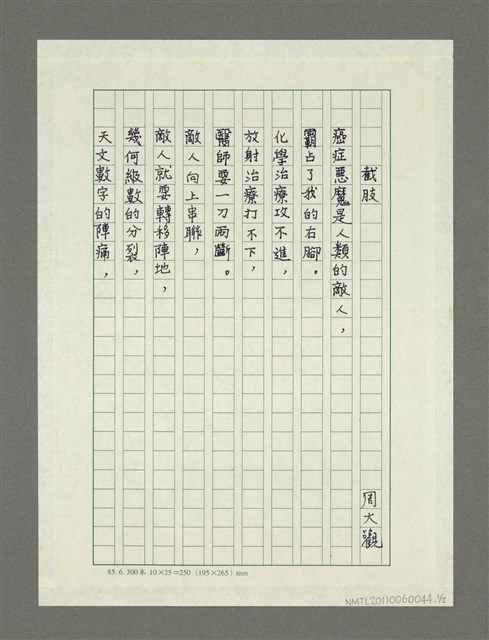 截肢 周大觀
癌症惡魔是人類的敵人，
霸占了我的右腳。
化學治療攻不進，
放射治療打不下，
醫師要一刀兩斷。
敵人向上串聯，
敵人就要轉移陣地，
幾何級數的分裂，
天文數字的陣痛，
85.6.300本 10×25=250 (195×265) mm
NMTL20110060044.1/2